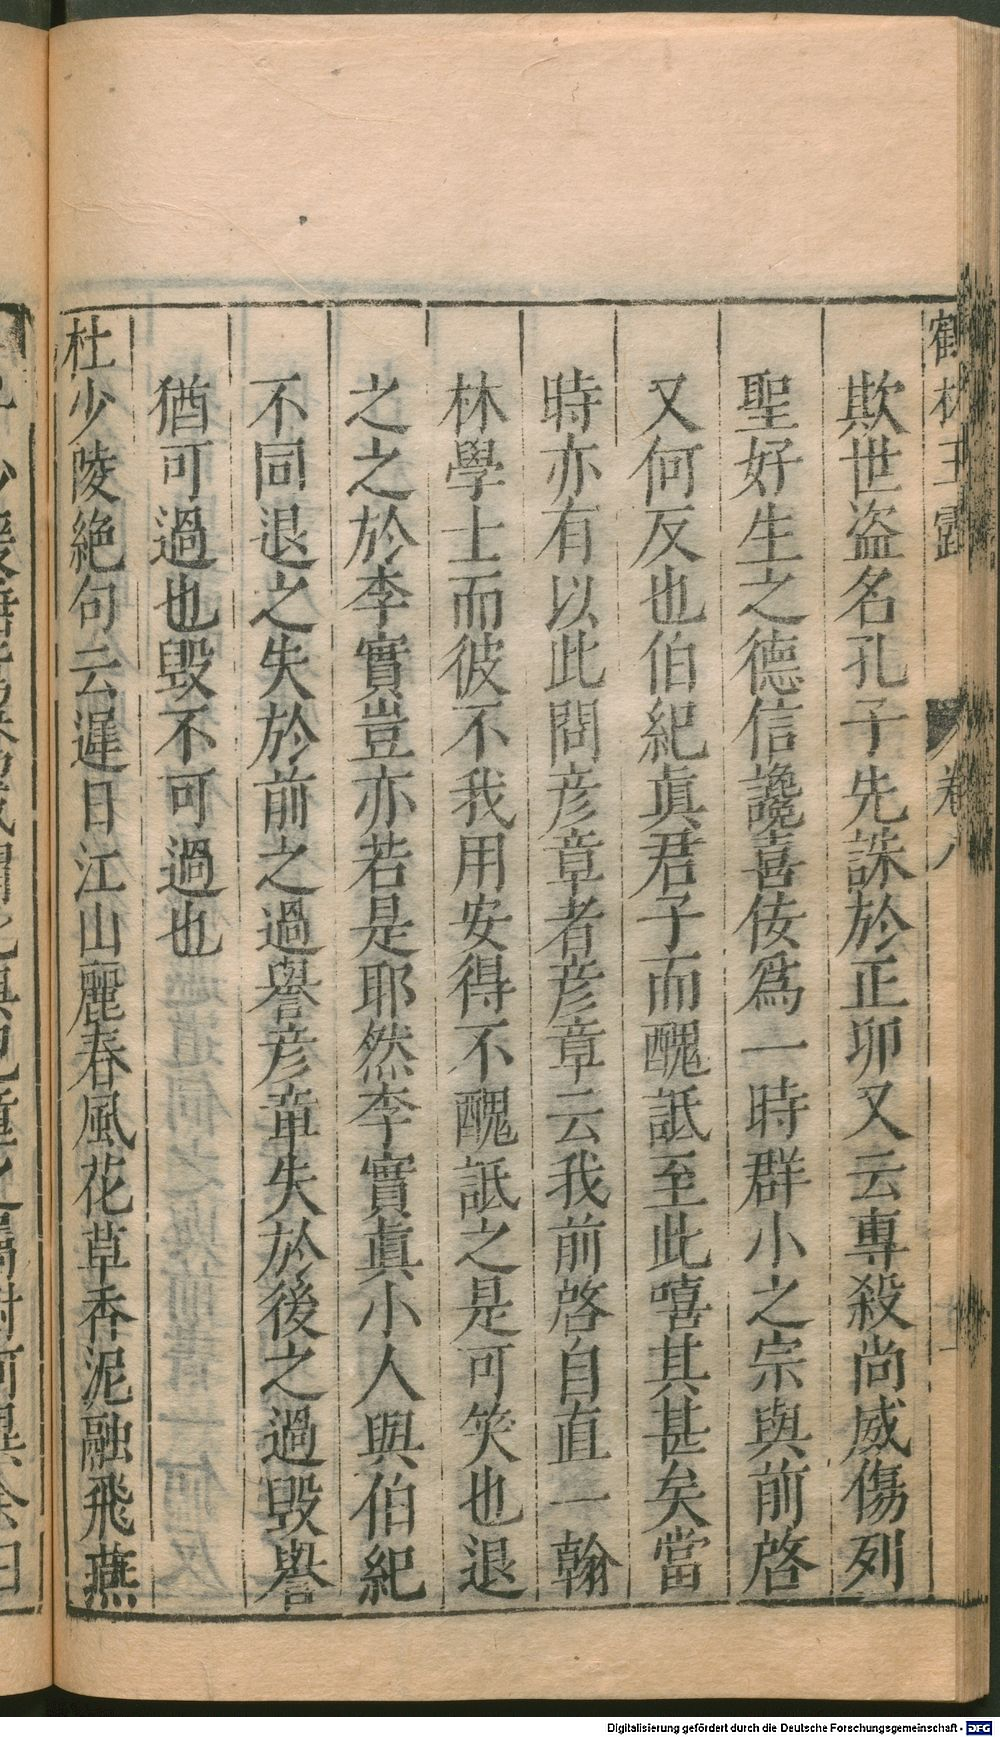 鶴林玉露
卷八
欺世盜名孔子先誅於正卯又云專殺尚威傷列
聖好生之德信讒喜佞爲一時群小之宗與前啓
又何反也伯紀眞君子而醜詆至此嘻其甚矣當
時亦有以此問彥章者彥章云我前啓自直一翰
林學士而彼不我用安得不醜詆之是可笑也退
之之於李實豈亦若是耶然李實眞小人與伯紀
不同退之失於前之過譽彥章失於後之過毀譽
猶可過也毀不可過也
杜少陵絶句云遲日江山麗春風花草香泥融飛燕
Digitalisierung gefördert durch die Deutsche Forschungsgemeinschaft - DFG